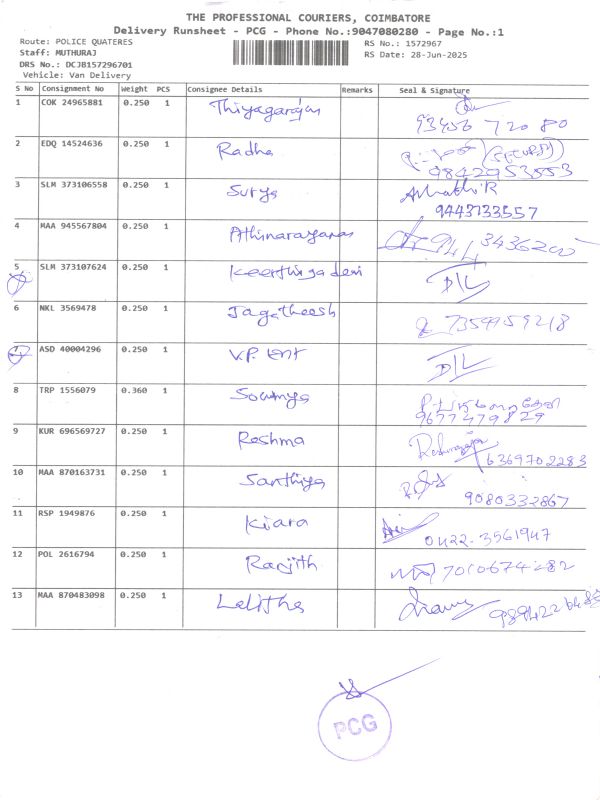 THE PROFESSIONAL COURIERS, COIMBATORE
Delivery Runsheet - PCG - Phone No.:9047080280 - Page No.:1
Route: POLICE QUATERES RS No.: 1572967
Staff: MUTHURAJ RS Date: 28-Jun-2025
DRS No.: DCJB157296701
Vehicle: Van Delivery
S No Consignment No Weight PCS Consignee Details Remarks Seal & Signature
1 COK 24965881 0.250 1 Thiyagarajan
93456 72080
2 EDQ 14524636 0.250 1 Radha (SECURITY)
9842953553
3 SLM 373106558 0.250 1 Surya
9443733557
4 MAA 945567804 0.250 1 Athinarayanan
5 SLM 373107624 0.250 1 Keerthiga devi D/L
6 NKL 3569478 0.250 1 Jagatheesh 7359959218
7 ASD 40004296 0.250 1 V.P. ent D/L
8 TRP 1556079 0.360 1 Soumya
9677479829
9 KUR 696569727 0.250 1 Reshma
6369702283
10 MAA 870163731 0.250 1 Santhiya
9080332867
11 RSP 1949876 0.250 1 Kiara
0422-3561947
12 POL 2616794 0.250 1 Ranjith
13 MAA 870483098 0.250 1 Lalitha
PCG